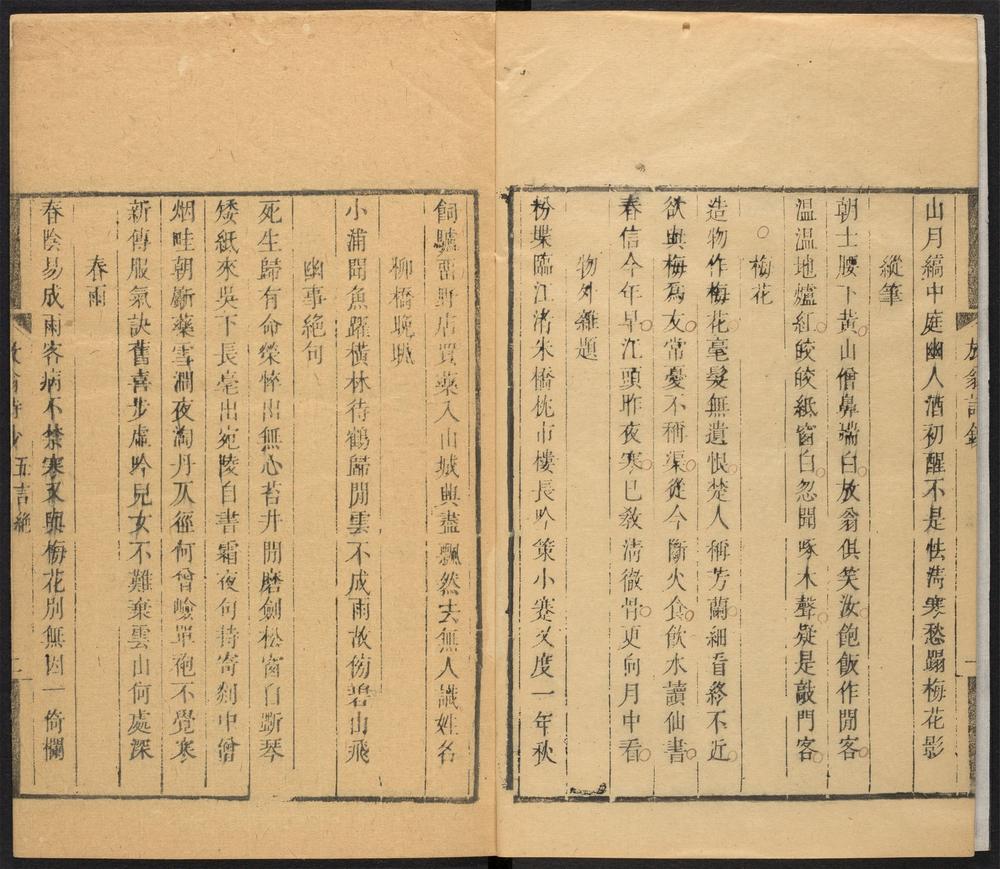 山月縞中庭幽人酒初醒不是怯淸寒愁蹋梅花影
縱筆
朝士腰下黃山僧鼻端白放翁俱笑汝飽飯作閒客
温温地爐紅皎皎紙窗白忽聞啄木聲疑是敲門客
梅花
造物作梅花毫髮無遺恨楚人稱芳蘭細看終不近
欲與梅爲友常憂不稱渠從今斷火食飲水讀仙書
春信今年早江頭昨夜寒已敎淸徹骨更向月中看
物外雜題
粉堞臨江渚朱橋枕市樓長吟策小蹇又度一年秋
飼驢畱野店買藥入山城興盡飄然去無人識姓名
柳橋晚眺
小浦聞魚躍橫林待鶴歸閒雲不成雨故傍碧山飛
幽事絕句
死生歸有命榮悴出無心苔井閒磨劍松窗自斲琴
矮紙來吳下長毫出宛陵自書霜夜句持寄剡中僧
烟畦朝斸藥雪澗夜淘丹仄徑何曾嶮單袍不覺寒
新傳服氣訣舊喜步虛吟兒女不難棄雲山何處深
春雨
春陰易成雨客病不禁寒又與梅花別無因一倚欄
放翁詩鈔 五言絕 二